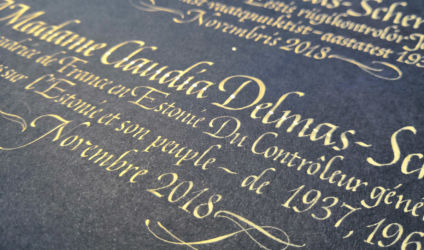 as-Scher
Eesti riigikontrolör-
ast vaatepunktist-aastatest 193
Novembris 2018
Madame Claudia Delmas-Sch
de France en Estonie Du Contrôleur géné
s sur l'Estonie et son peuple - de 1937, 196
Novembre 2018